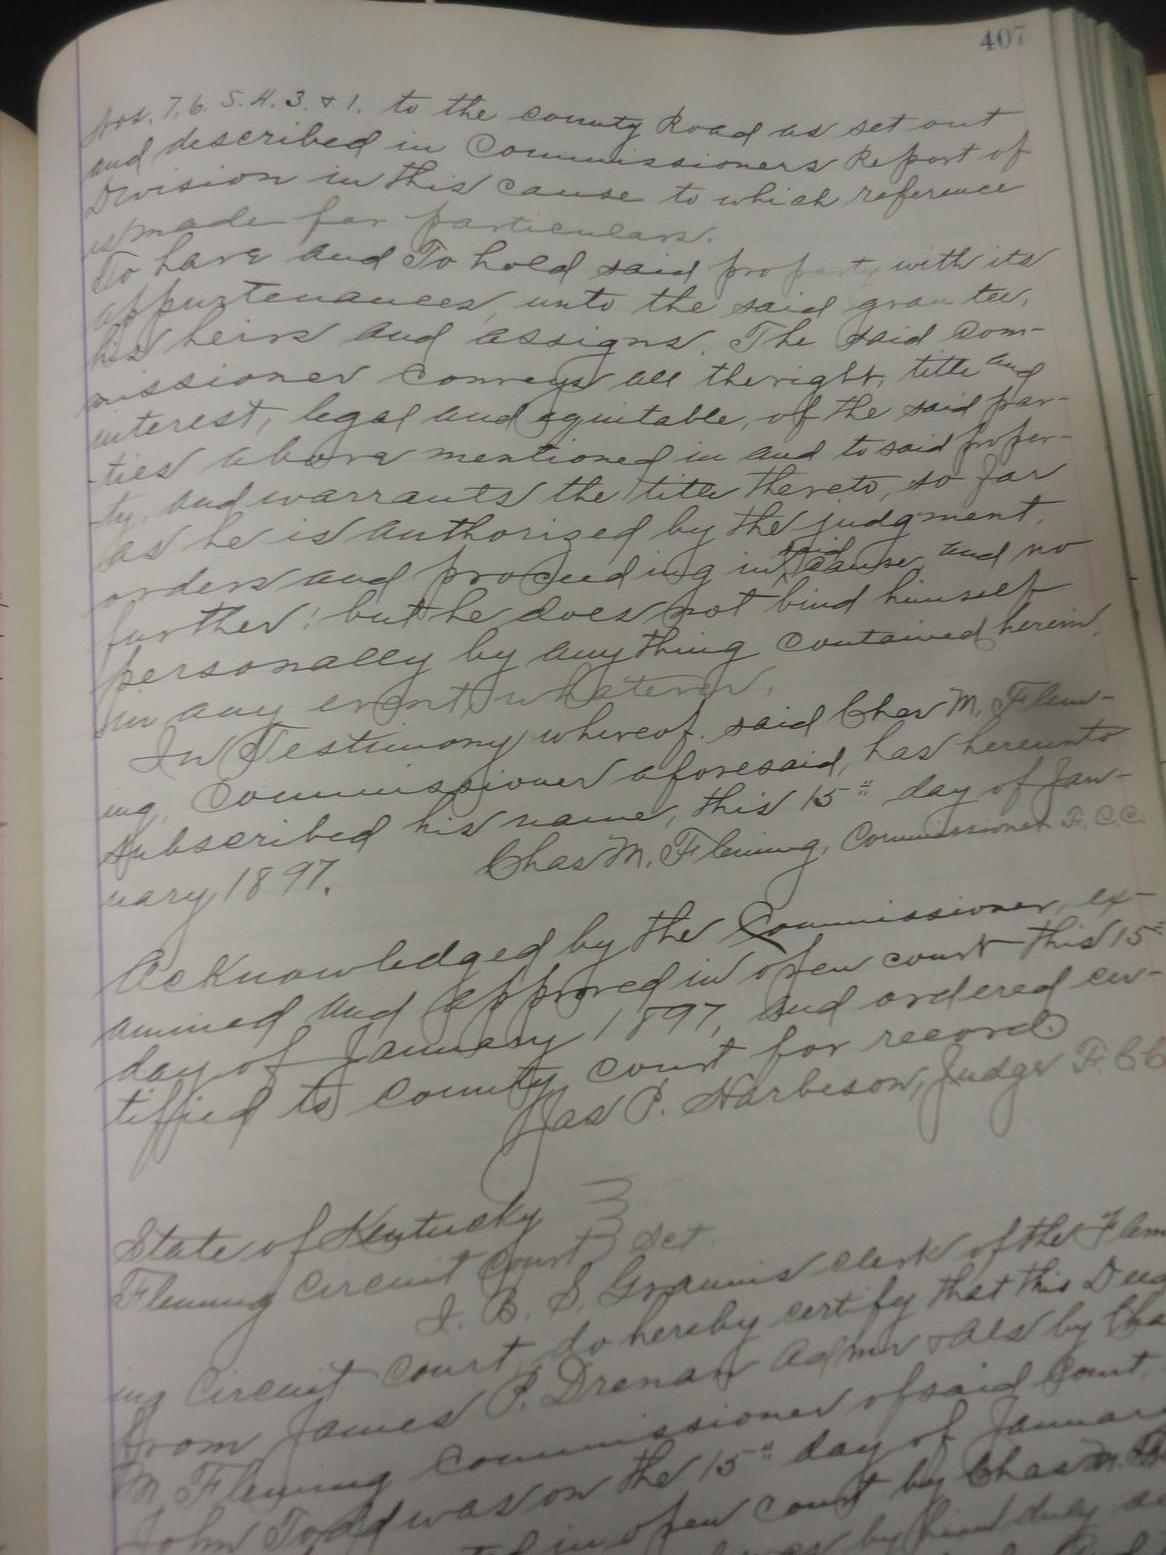 407
Nos. 7. 6. 5. 4. 3. & 1. to the county Road as set out
and described in Commissioners Report of
Division in this cause to which reference
is made for particulars.
To have and To hold said property with its
appurtenances, unto the said grantee,
his heirs and assigns. The said Com-
missioner conveys all the right, title and
interest, legal and equitable, of the said par-
ties above mentioned in and to said proper-
ty, and warrants the title thereto, so far
as he is authorized by the judgment,
orders and proceeding in said cause, and no
further; but he does not bind himself
personally by anything contained herein,
in any event, whatever.
In Testimony whereof, said Chas M. Flem-
ing, Commissioner aforesaid, has hereunto
subscribed his name, this 15" day of Jan-
uary 1897.
Chas M. Fleming, Commissioner F. C. C.
Acknowledged by the Commissioner, ex-
amined and approved in open court this 15"
day of January 1897, and ordered cer-
tified to county court for record
Jas P. Harbeson, Judge F. C C
State of Kentucky
Fleming Circuit Court Sct.
I. B. S. Grannis clerk of the Flem
ing Circuit court, do hereby certify that this Deed
from James P. Drenan Admr & Als by Cha
M. Fleming Commissioner of said Court,
John Todd was on the 15" day of Januar
in open court by Chas M.
by him duly